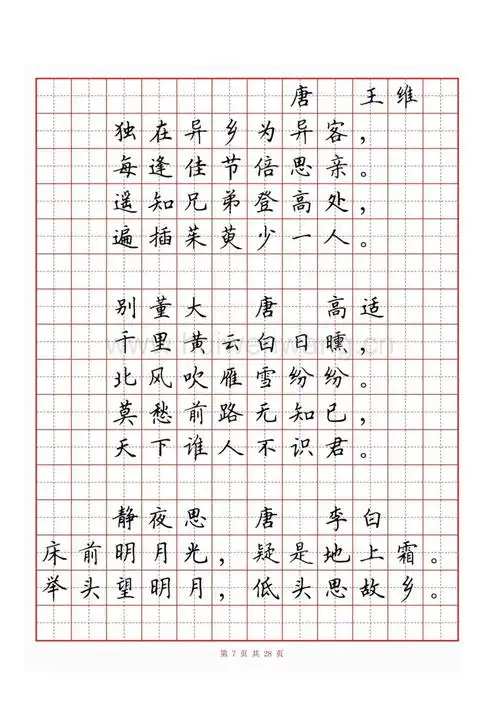 唐 王维
独在异乡为异客，
每逢佳节倍思亲。
遥知兄弟登高处，
遍插茱萸少一人。
别董大 唐 高适
千里黄云白日曛，
北风吹雁雪纷纷。
莫愁前路无知已，
天下谁人不识君。
静夜思 唐 李白
床前明月光，疑是地上霜。
举头望明月，低头思故乡。
第 7 页 共 28 页